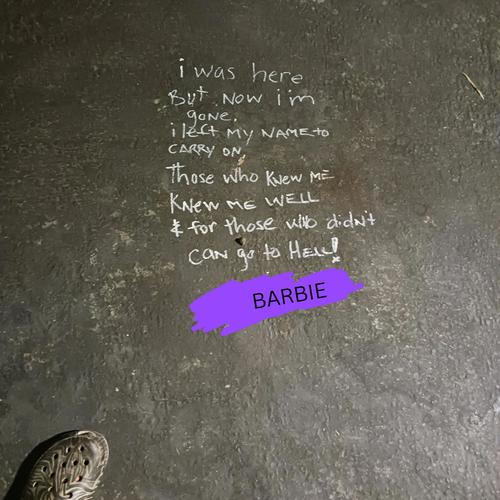 i was here
But now i'm
gone.
i left MY NAME to
CARRY ON
Those who Knew ME
KNEW ME WELL
& for those who didn't
CAN go to HELL!
BARBIE